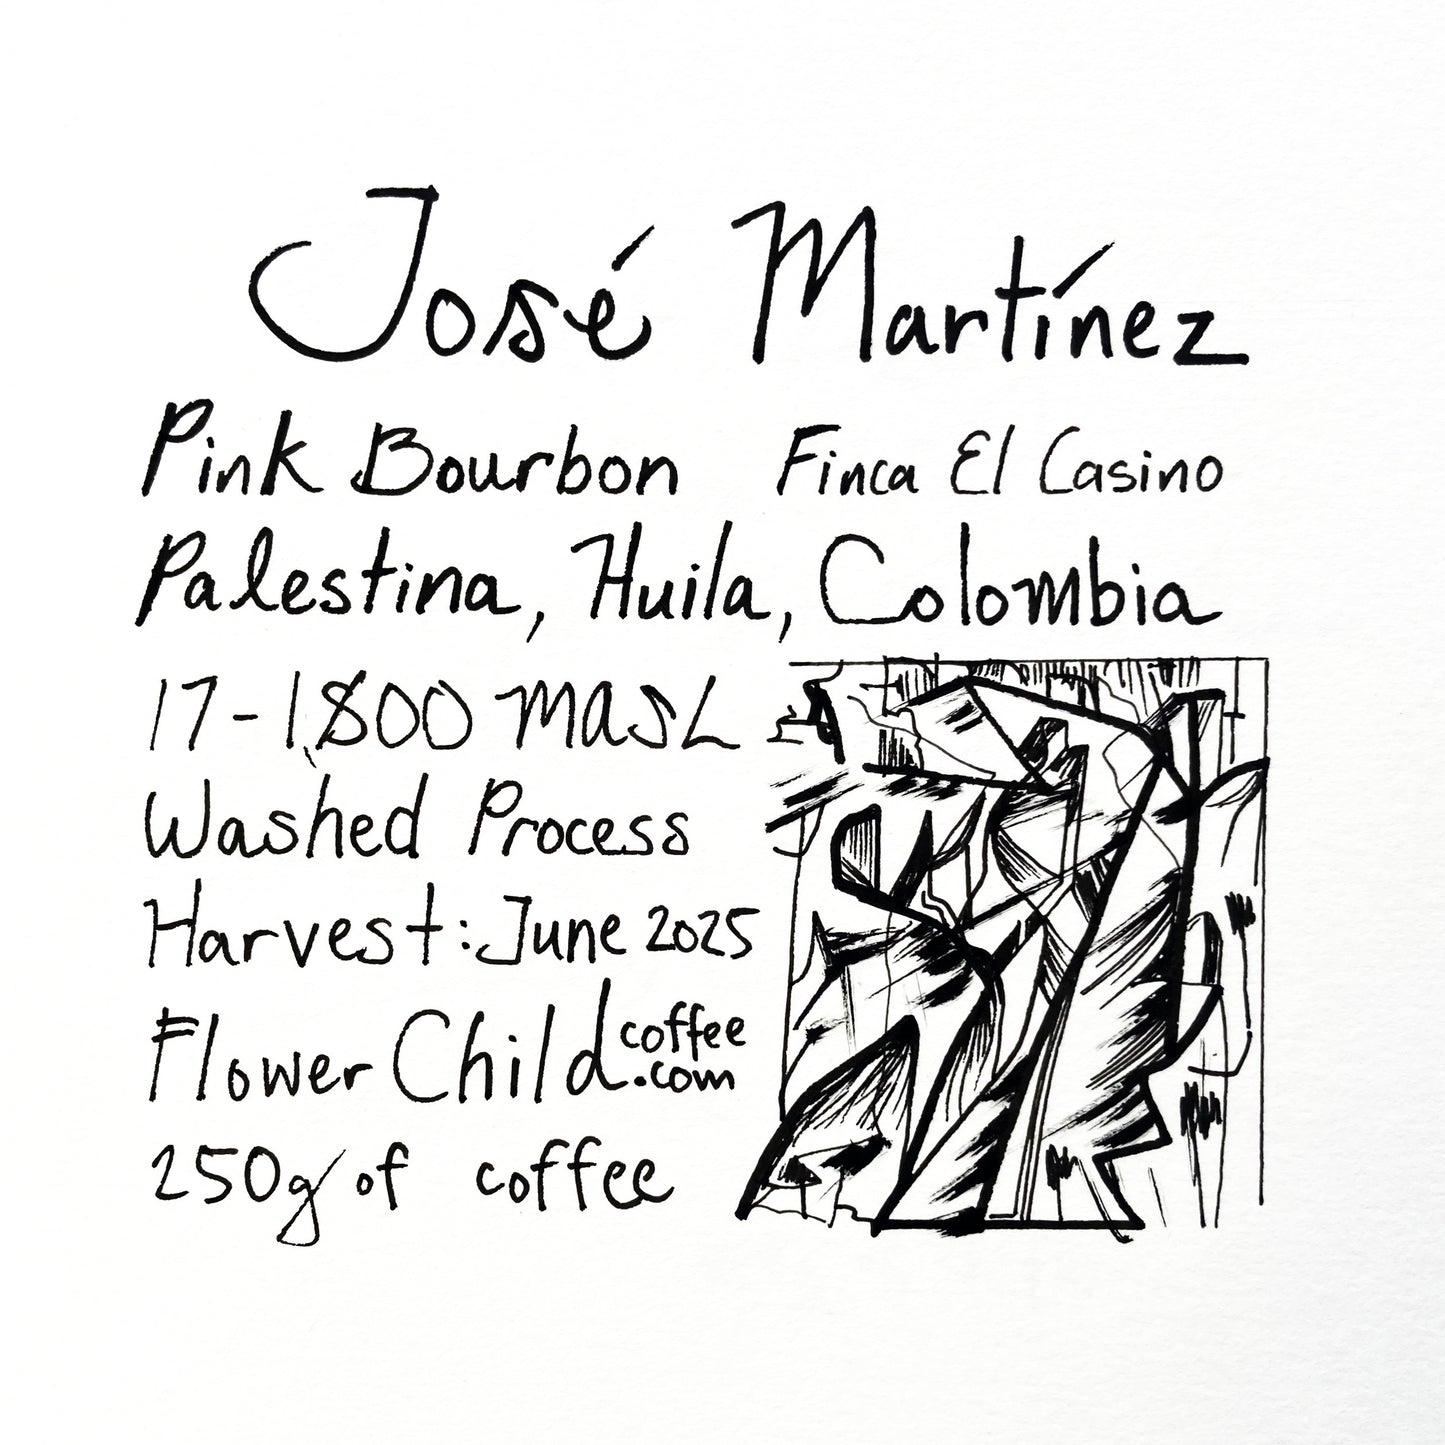 José Martínez
Pink Bourbon Finca El Casino
Palestina, Huila, Colombia
17-1,800 MASL
Washed Process
Harvest: June 2025
Flower Child coffee
.com
250g of coffee